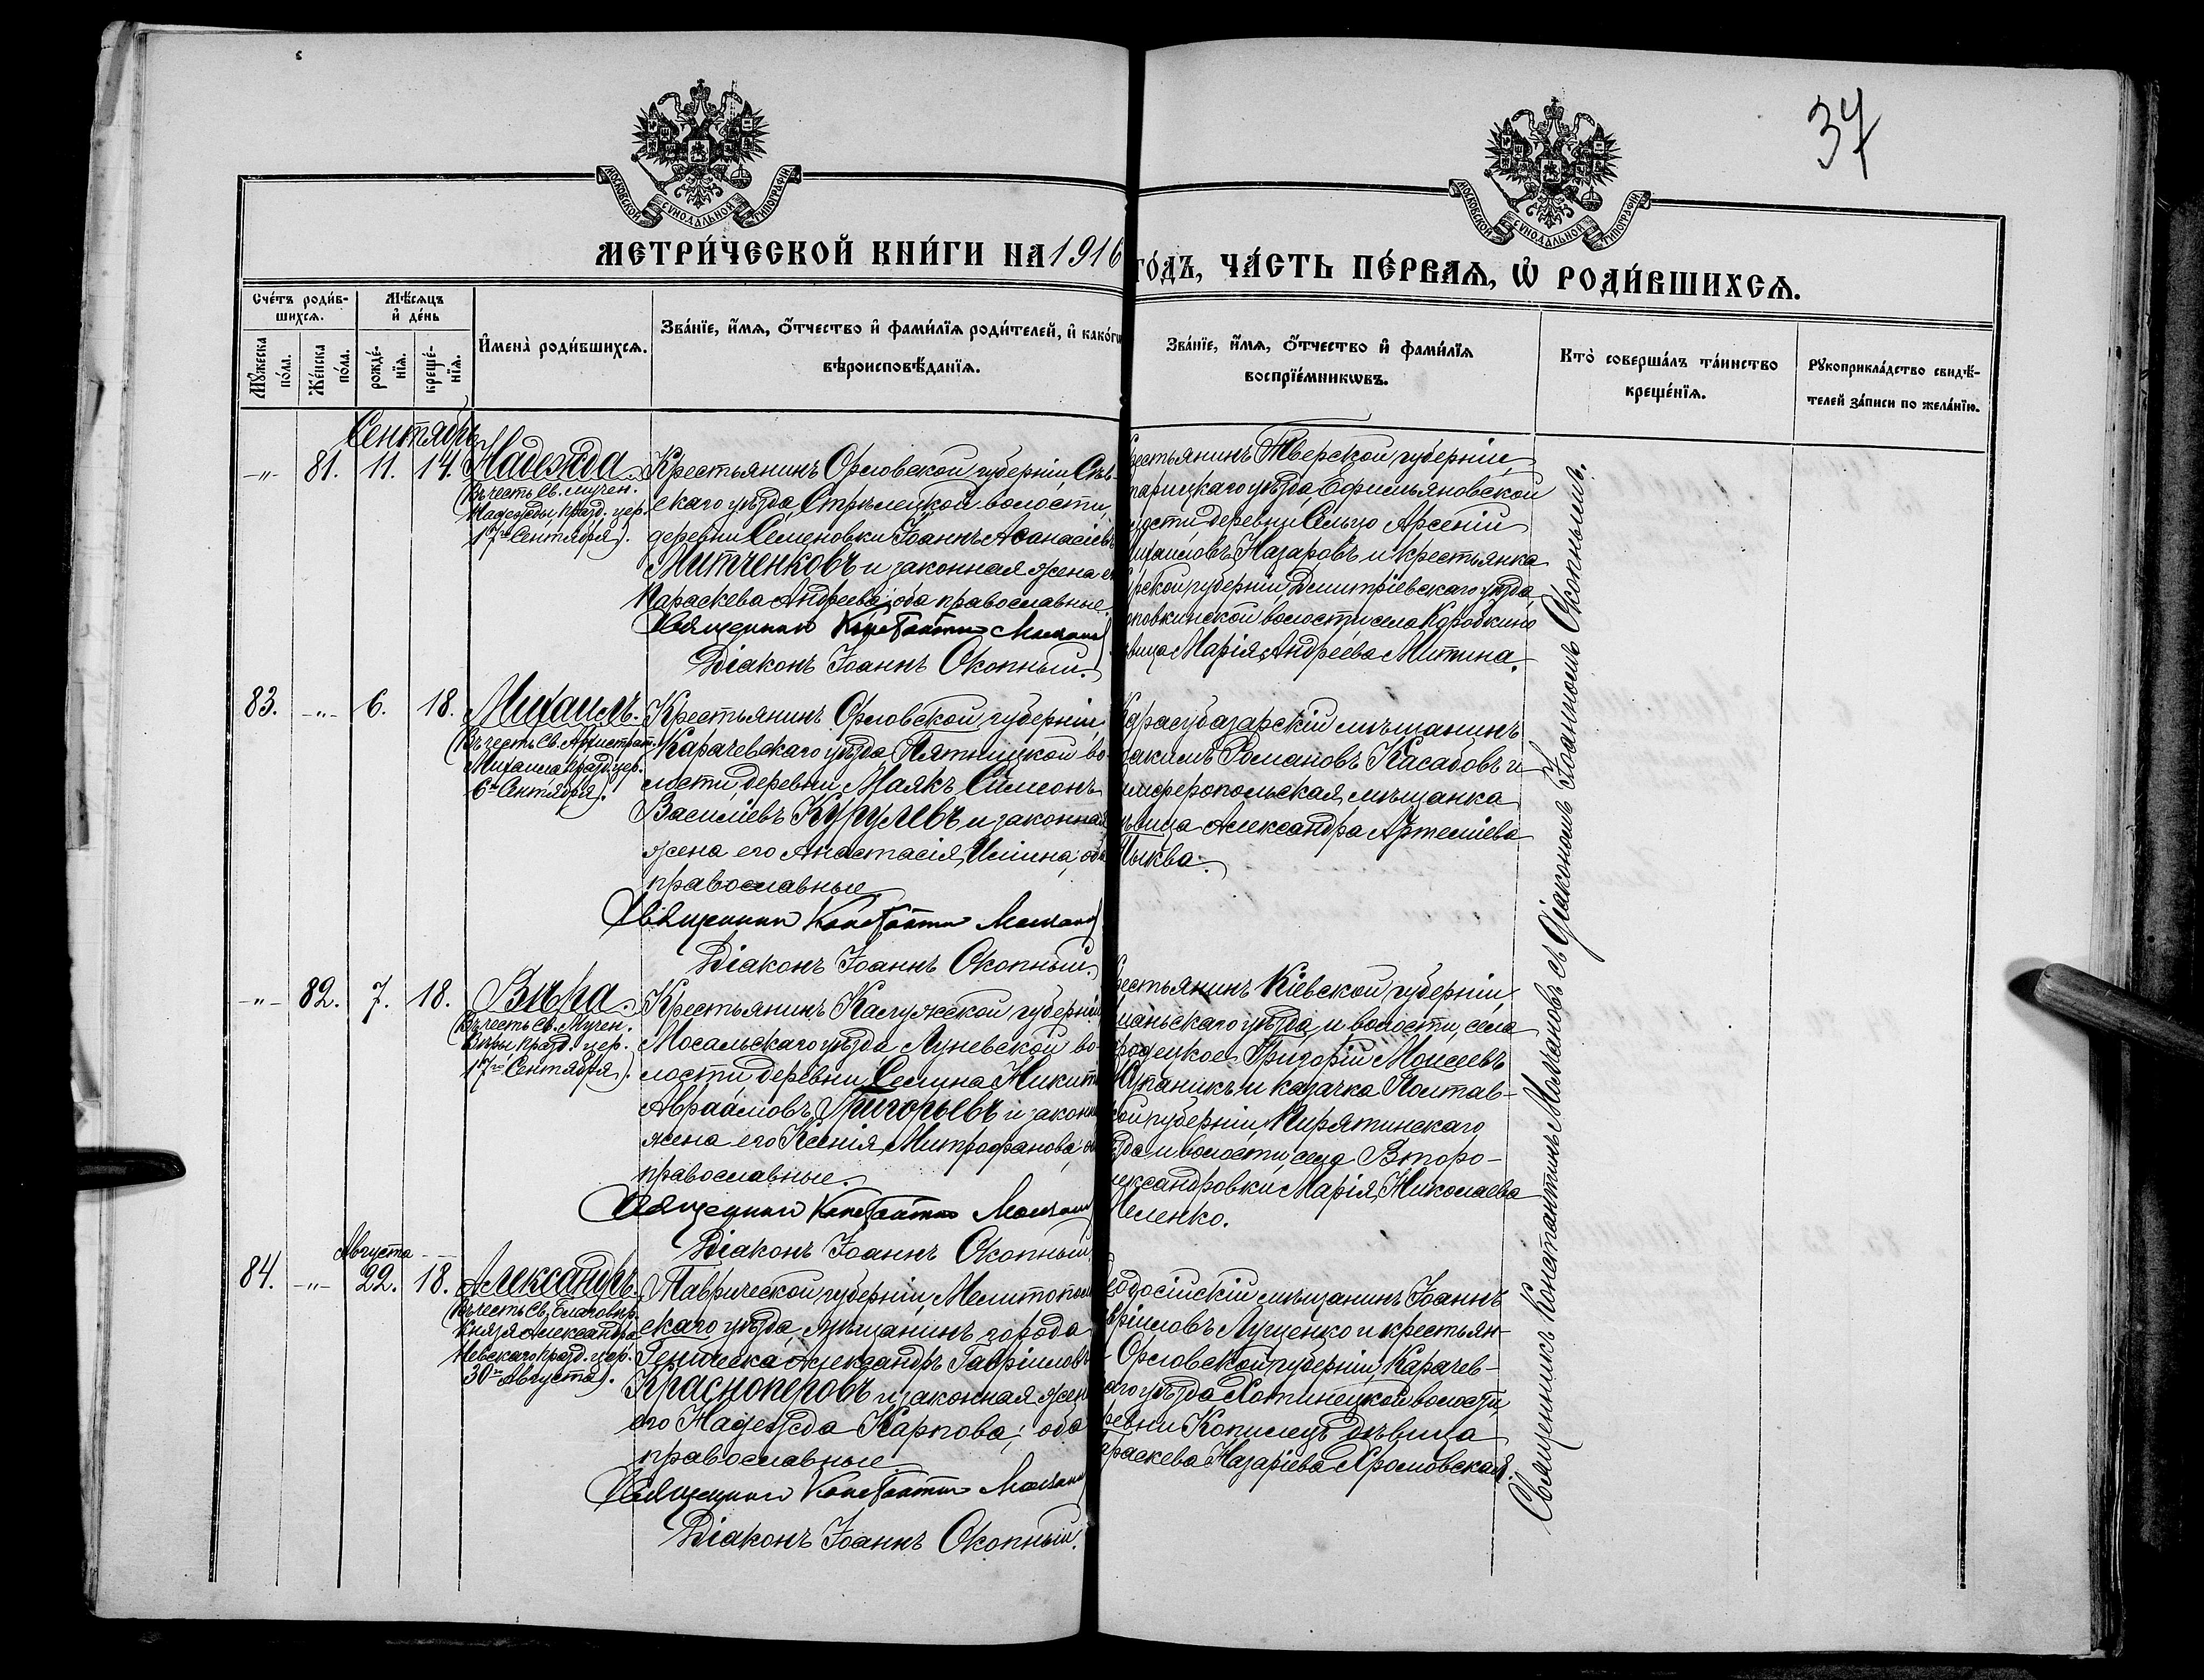 37
МОСКОВСКОЙ СѴНОДАЛЬНОЙ ТИПОГРАФІИ
МОСКОВСКОЙ СѴНОДАЛЬНОЙ ТИПОГРАФІИ
МЕТРИ́ЧЕСКОЙ КНИ́ГИ НА 1916
ГО́ДЪ, ЧА́СТЬ ПЕ́РВАѦ, Ѡ РОДИ́ВШИХСѦ.
Сче́тъ роди́в-
шихсѧ.
Мѣ́сѧцъ
и҆ де́нь
И҆мена̀ роди́вшихсѧ.
Зва́нїе, и҆́мѧ, ѻ҆́тчество и҆ фами́лїѧ роди́телей, и҆ како́гѡ
вѣроисповѣ́данїѧ.
Мꙋ́жеска
по́ла.
Же́нска
по́ла.
рожде́-
нїѧ.
креще́-
нїѧ.
Зва́нїе, и҆́мѧ, ѻ҆́тчество и҆ фами́лїѧ
воспрїе́мникѡвъ.
Кто̀ соверша́лъ та́инство
креще́нїѧ.
Рꙋкоприкла́дство свидѣ́-
телей за́писи по жела́нїю.
Сентябрь
-"- 81. 11. 14. Надежда.
(Въ честь Св. мучен.
Надежды, празд. цер.
17го Сентября).
Крестьянинъ Орловской губерніи, Сѣв-
скаго уѣзда, Стрѣлецкой волости,
деревни Семеновки Іоаннъ Аѳанасіевъ
Митченковъ и законная жена е
Параскева Андреева; оба православные
Священникъ Константинъ Молчанов
Діаконъ Іоаннъ Окопный.
рестьянинъ Тверской губерніи,
тарицкаго уѣзда, Ефимьяновской
лости деревни Сельцо Арсеній
Михаиловъ Назаровъ и крестьянка
урской губерніи, Дмитріевскаго уѣзда,
поповкинской волости села Коробкино
вица Марія Андреева Митина.
83. -"- 6. 18. Михаилъ.
(Въ честь Св. Архистрат.
Михаила празд. цер.
6го Сентября).
Крестьянинъ Орловской губерніи,
Карачевскаго уѣзда, Пятницкой во-
лости, деревни Маякъ Симеонъ
Василіевъ Курулевъ и законная
жена его Анастасія Иліина; оба
православные
Священникъ Константинъ Молчанов
Діаконъ Іоаннъ Окопный.
Карасубазарскій мѣщанинъ
акимъ Романовъ Касабовъ и
имферопольская мѣщанка
ѣвица Александра Артеміева
Цыква.
-"- 82. 7. 18. Вѣра.
(Въ честь Св. Мучен.
Вѣры празд. цер.
17го Сентября).
Крестьянинъ Калужской губерніи
Мосальскаго уѣзда Луневской во-
лости деревни Селина Никита
Авраамовъ Григорьевъ и законн
жена его Ксенія Митрофанова; об
православные.
Священникъ Константинъ Молчан
Діаконъ Іоаннъ Окопный
рестьянинъ Кіевской губерніи,
маньскаго уѣзда и волости, села
родецкое Григорій Моисеевъ
Жупаникъ и казачка Полтав-
кой губерніи, Пирятинскаго
ѣзда и волости, села Второ-
лександровки Марія Николаева
Меленко.
Августа
84. -"- 22. 18. Александръ.
(Въ честь Св. Благовѣр.
Князя Александра
Невскаго празд. цер.
30го Августа).
Таврической губерніи, Мелитополь
скаго уѣзда, мѣщанинъ города
Геническа Александръ Гавріиловъ
Красноперовъ и законная жен
его Надежда Карпова; оба
православные
Священникъ Константинъ Молчан
Діаконъ Іоаннъ Окопный.
еодосійскій мѣщанинъ Іоаннъ
вріиловъ Луценко и крестьян-
Орловской губерніи, Карачев-
каго уѣзда Хотинецкой волости,
ревни Копилецъ дѣвица
араскева Назаріева Хромовская.
Священникъ Константинъ Молчановъ съ Діакономъ Іоанномъ Окопнымъ.